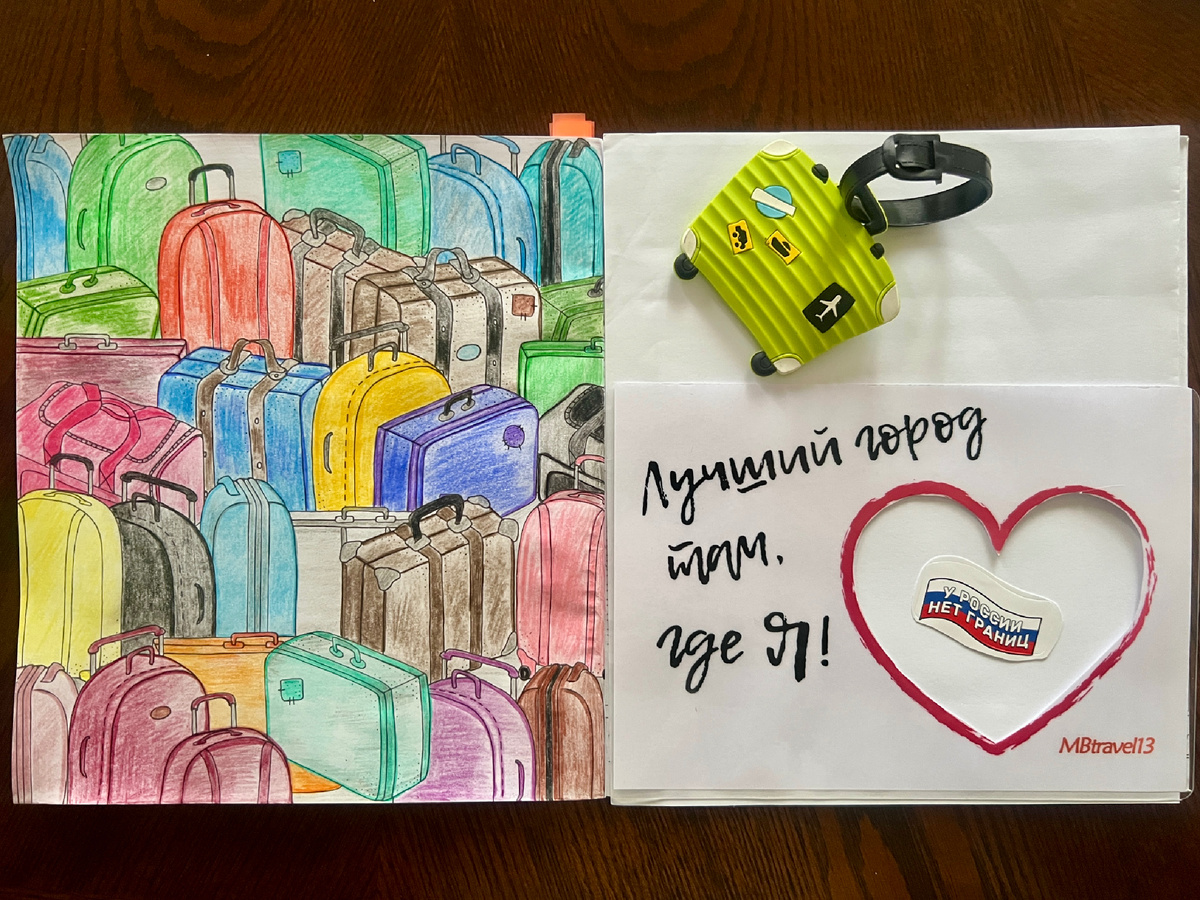 Лучший город
там,
где Я!
У РОССИИ
НЕТ ГРАНИЦ
MBtravel13